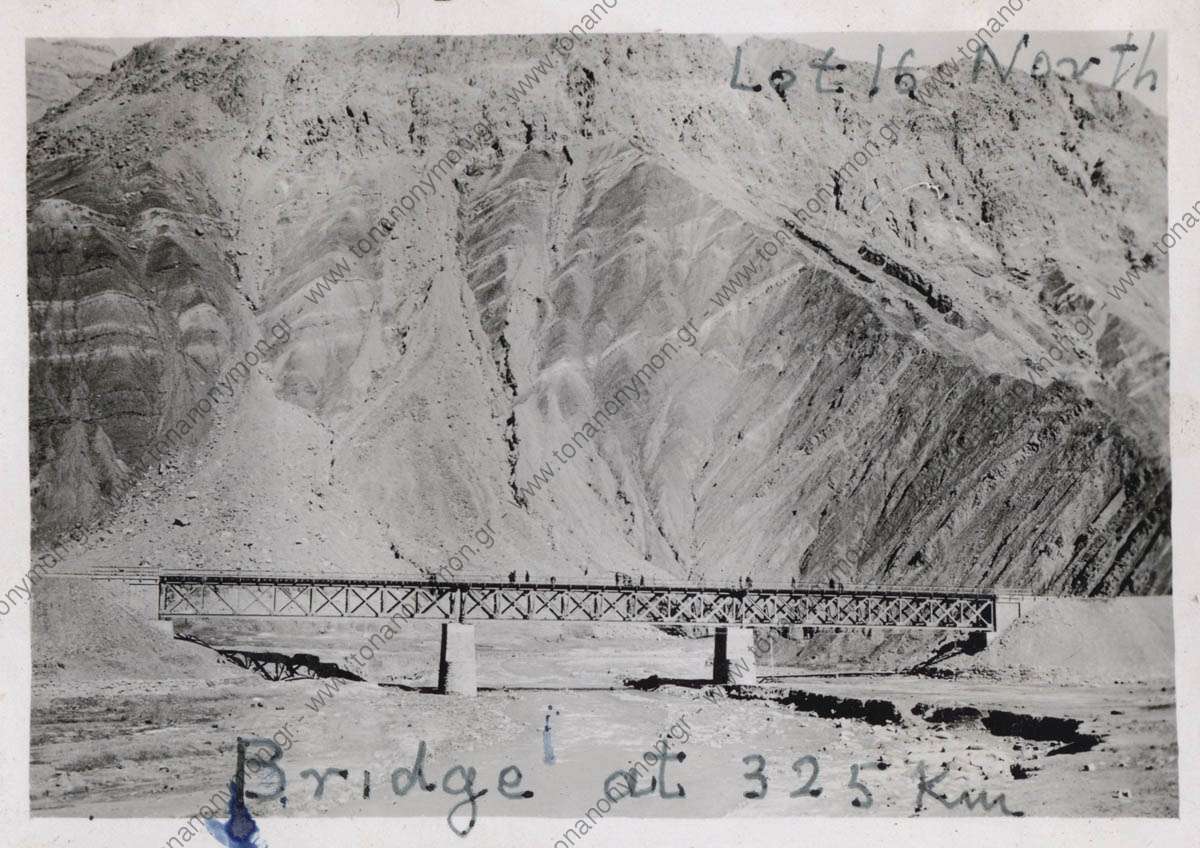 Lot 16 North
Bridge at 325 Km
www.tonanonymon.gr